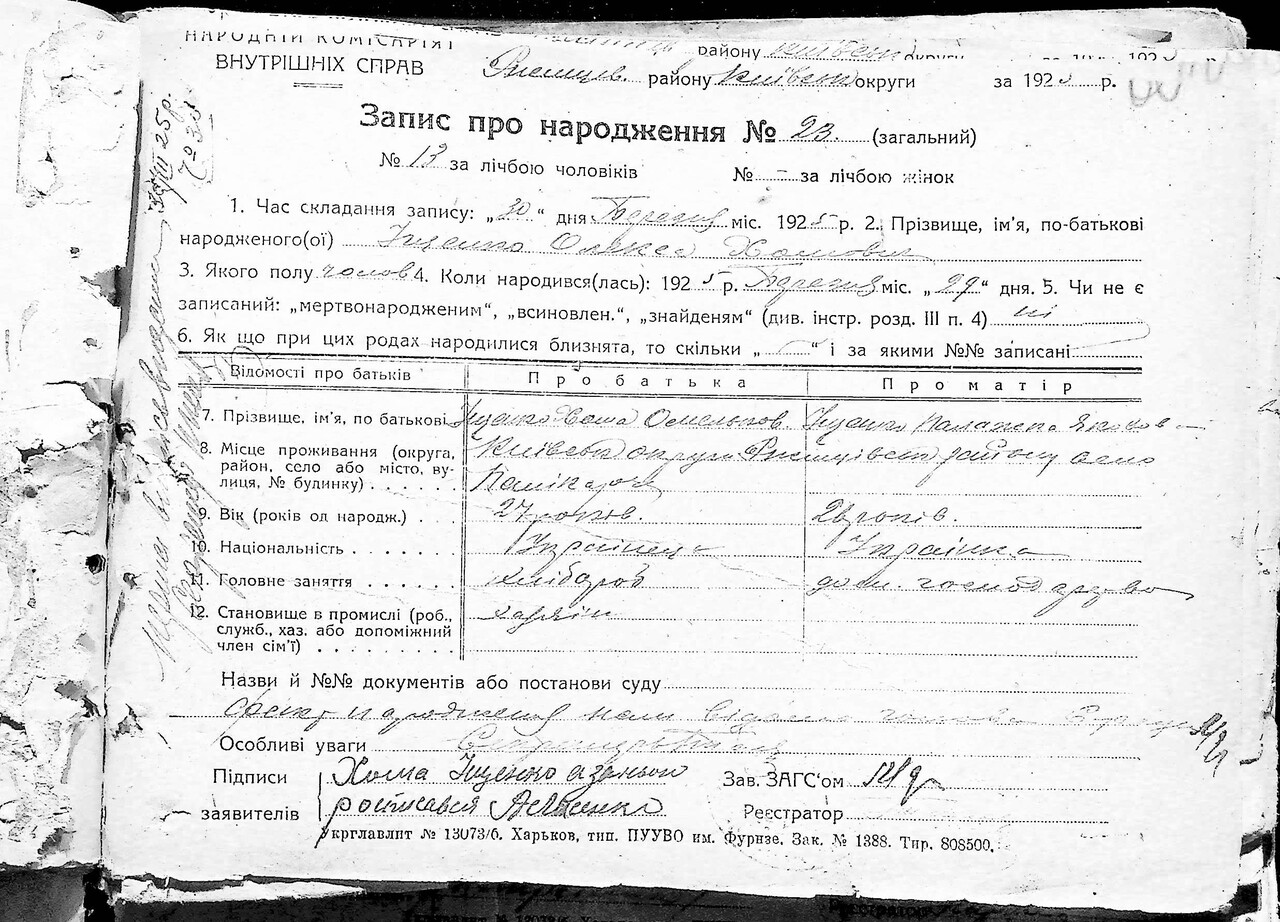 НАРОДНІЙ КОМІСАРІЯТ
району округи 192
ВНУТРІШНІХ СПРАВ
району Київськ округи за 1925 р.
Запис про народження № 23. (загальний)
№ 13 за лічбою чоловіків № – за лічбою жінок
1. Час складання запису: „30“ дня Березня міс. 1925 р. 2. Прізвище, ім'я, по-батькові
народженого(ої) Іщенко Олекса Хомович
3. Якого полу чолов 4. Коли народився(лась): 1925 р. Березня міс. „29“ дня. 5. Чи не є
записаний: „мертвонародженим“, „всиновлен.“, „знайденям“ (див. інстр. розд. III п. 4) ні
6. Як що при цих родах народилися близнята, то скільки „ “ і за якими №№ записані
Відомості про батьків Про батька Про матір
7. Прізвище, ім'я, по батькові Іщенко Хома Омельков. Іщенко Палажка Яковов
8. Місце проживання (округа, Київськ округи Ржищівськ району село
район, село або місто, ву-
лиця, № будинку) . . . . .
9. Вік (років од народж.) . . 27 років. 26 років.
10. Національність . . . . . . . Українець Українка
11. Головне заняття . . . . . . хлібороб дом. господарство
12. Становище в промислі (роб., хазяїн
служб., хаз. або допоміжний
член сім'ї) . . . . . . . . .
Назви й №№ документів або постанови суду
народження
Особливі уваги
Підписи Хома Іщенко а за нього
заявителів росписався
Зав. ЗАГС'ом
Реєстратор
Укрглавлит № 13073/6. Харьков, тип. ПУУВО им. Фурнзе. Зак. № 1388. Тир. 808500.